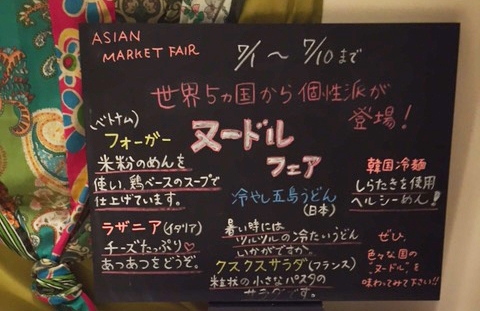 ASIAN
MARKET FAIR
7/1 〜 7/10 まで
世界5ヵ国から個性派が
登場!
ヌードル
フェア
(ベトナム)
フォーガー
米粉のめんを
使い、鶏ベースのスープで
仕上げています。
ラザニア(イタリア)
チーズたっぷり♡
あつあつをどうぞ。
冷やし五島うどん
(日本)
暑い時には
ツルツルの冷たいうどん
いかがですか。
クスクスサラダ(フランス)
粒状の小さなパスタの
サラダです。
韓国冷麺
しらたきを使用
ヘルシーめん!
ぜひ、
色々な国の
"ヌードル"を
味わってみて下さい!!